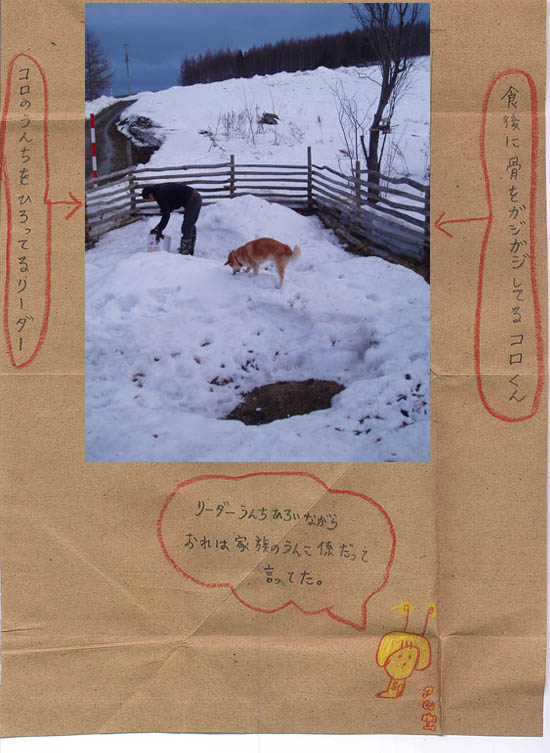 食後に骨をガジガジしてるコロくん
コロのうんちをひろってるリーダー
リーダーうんちひろいながら
おれは家族のうんこ係だって
言ってた。